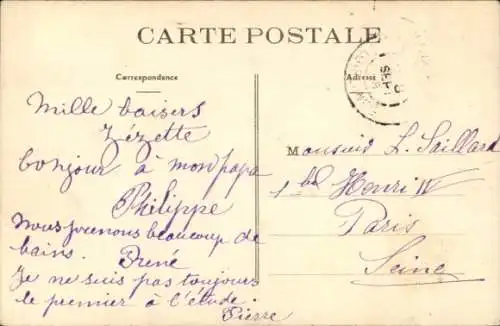 CARTE POSTALE
Correspondance
Adresse
SEPT
Mille baisers
Zézette
bonjour à mon papa
Philippe
Nous prenons beaucoup de
bains. René
Je ne suis pas toujours
le premier à l'étude.
Pierre
Monsieur L. Saillard
1 bd Henri IV
Paris
Seine